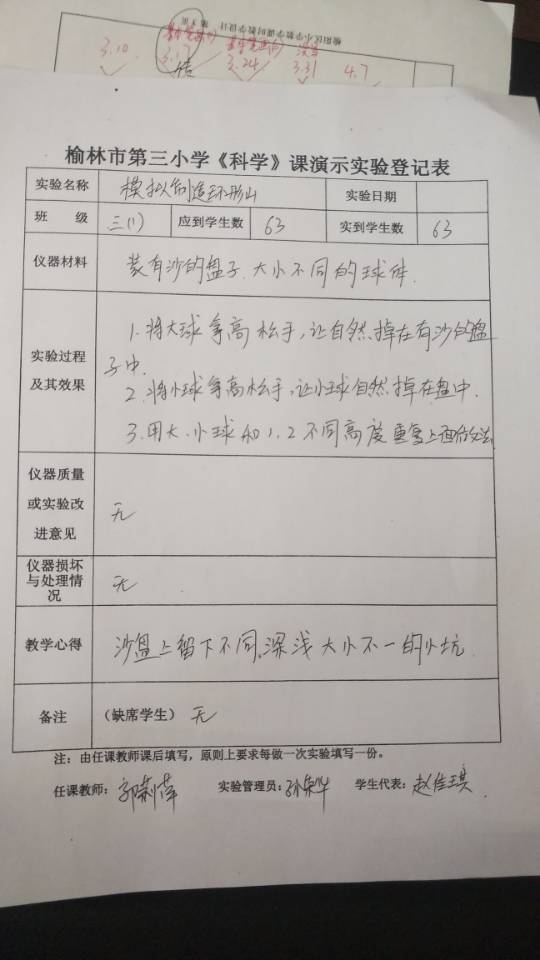 榆阳区小学数学课时教学设计 第 页
3.10 3.17 3.24 3.31 4.7
榆林市第三小学《科学》课演示实验登记表
实验名称 模拟制造环形山 实验日期
班 级 三(1) 应到学生数 63 实到学生数 63
仪器材料 装有沙的盘子、大小不同的球体.
实验过程及其效果
1.将大球拿高松手,让自然掉在有沙的盘
子中.
2.将小球拿高松手,让小球自然掉在盘中.
3.用大、小球和1.2不同高度重复上面做法
仪器质量
或实验改
进意见
无
仪器损坏
与处理情
况
无
教学心得 沙盘上留下不同,深浅大小不一的小坑.
备注 (缺席学生) 无
注:由任课教师课后填写,原则上要求每做一次实验填写一份。
任课教师: 郭莉萍 实验管理员: 孙荣华 学生代表: 赵佳琪